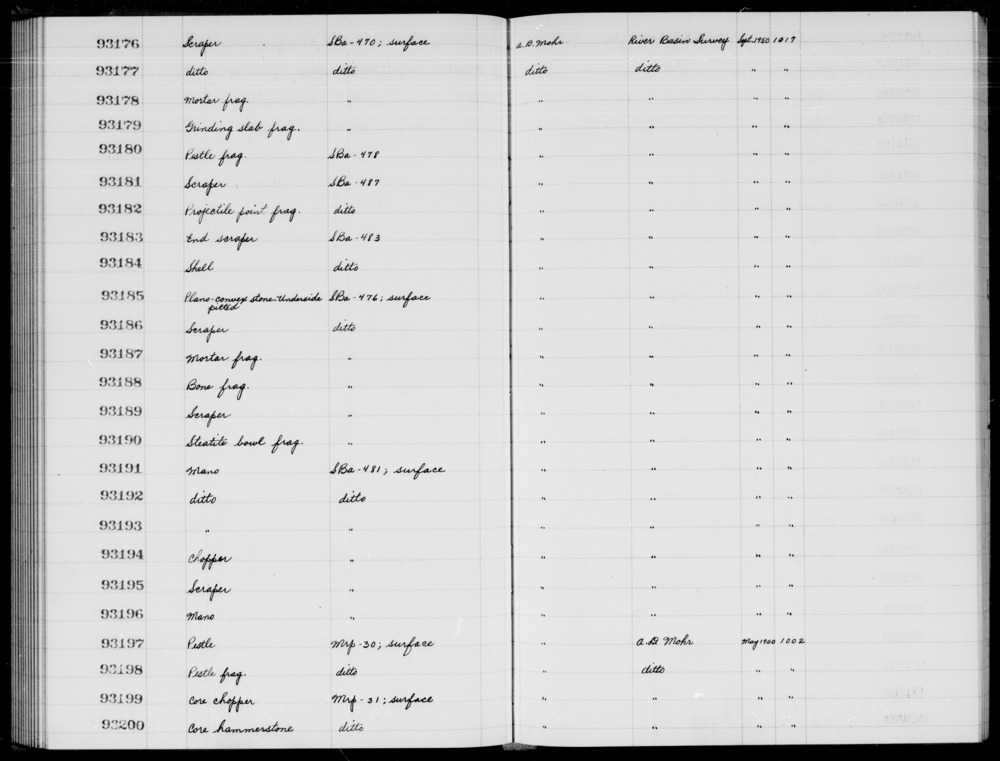 93176 Scraper SBa-470; surface A.D. Mohr River Basin Survey Sept. 1950 1017
93177 ditto ditto ditto ditto " "
93178 Mortar frag. " " " " "
93179 Grinding slab frag. " " " " "
93180 Pestle frag. SBa-478 " " " "
93181 Scraper SBa-487 " " " "
93182 Projectile point frag. ditto " " " "
93183 End scraper SBa-483 " " " "
93184 Shell ditto " " " "
93185 Plano-convex stone-Underside SBa-476; surface " " " "
pitted
93186 Scraper ditto " " " "
93187 Mortar frag. " " " " "
93188 Bone frag. " " " " "
93189 Scraper " " " " "
93190 Steatite bowl frag. " " " " "
93191 Mano SBa-481; surface " " " "
93192 ditto ditto " " " "
93193 " " " " " "
93194 Chopper " " " " "
93195 Scraper " " " " "
93196 Mano " " " " "
93197 Pestle Mrp-30; surface " A.D. Mohr May 1950 1002
93198 Pestle frag. ditto " ditto " "
93199 Core chopper Mrp-31; surface " " " "
93200 Core hammerstone ditto " " " "